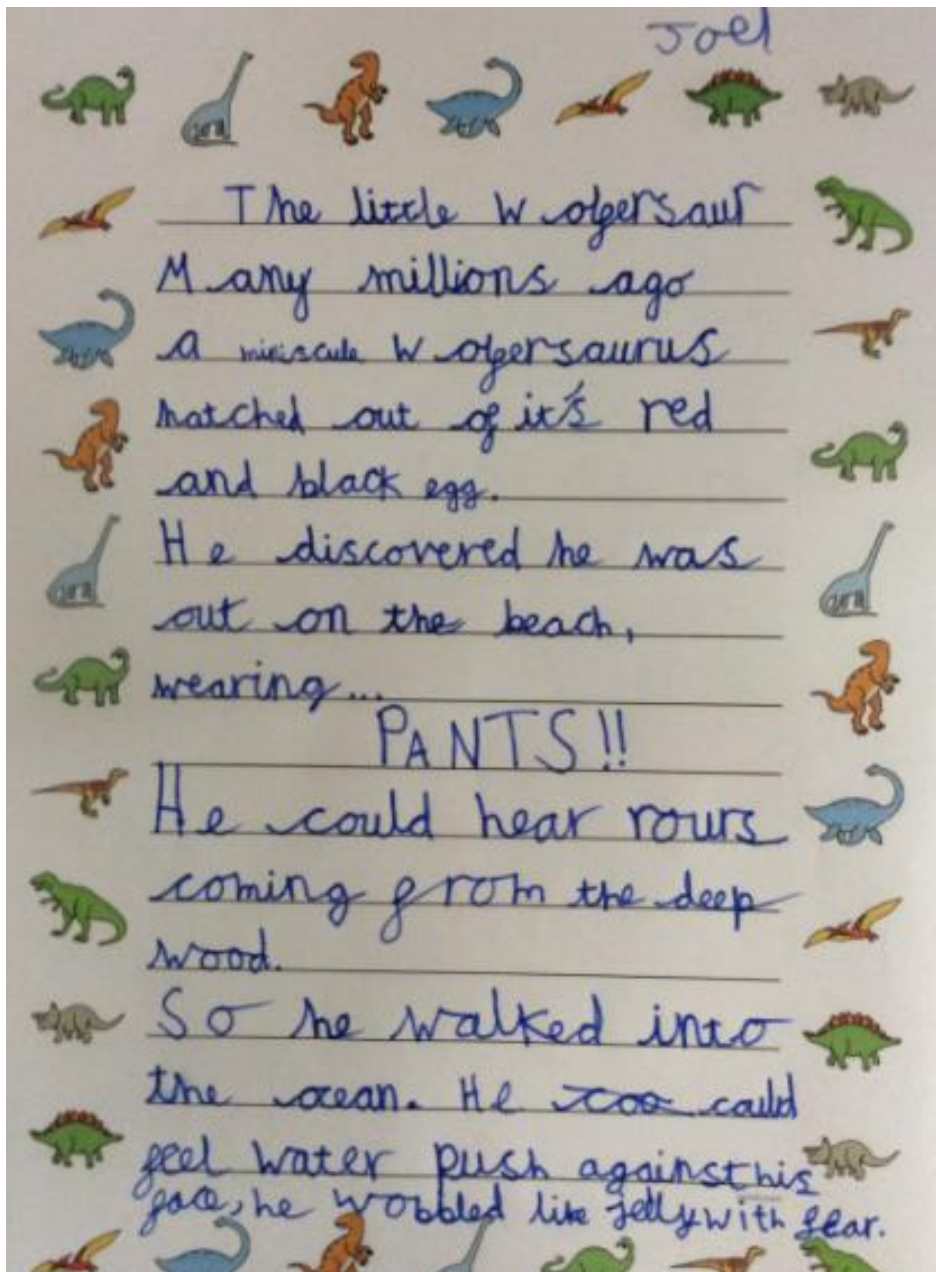 Joel
The little Wofersaur
Many millions ago
a miniscule Wofersaurus
hatched out of it's red
and black egg.
He discovered he was
out on the beach,
wearing...
PANTS!!
He could hear rours
coming from the deep
wood.
So he walked into
the ocean. He could
feel water push against his
face, he wobbled like jelly with fear.